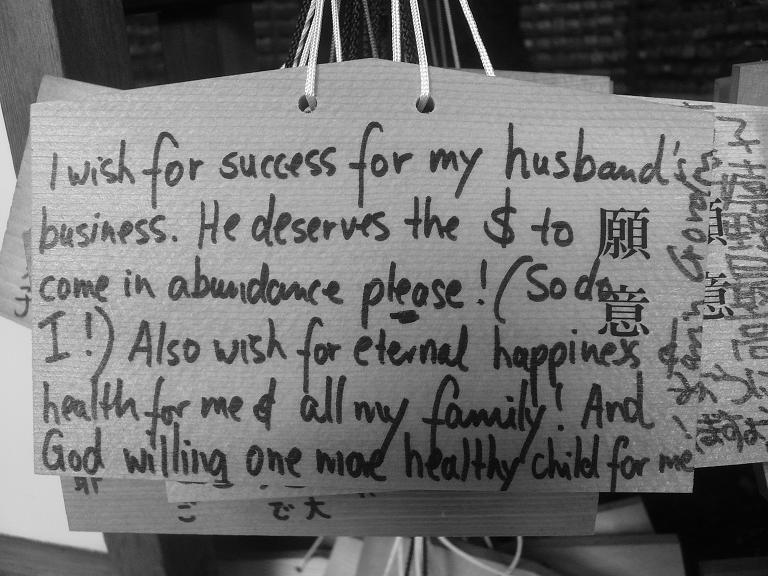 I wish for success for my husband's
business. He deserves the $ to
come in abundance please! (So do
I!) Also wish for eternal happiness &
health for me & all my family! And
God willing one more healthy child for me
願意
願意
ます
ご
で大